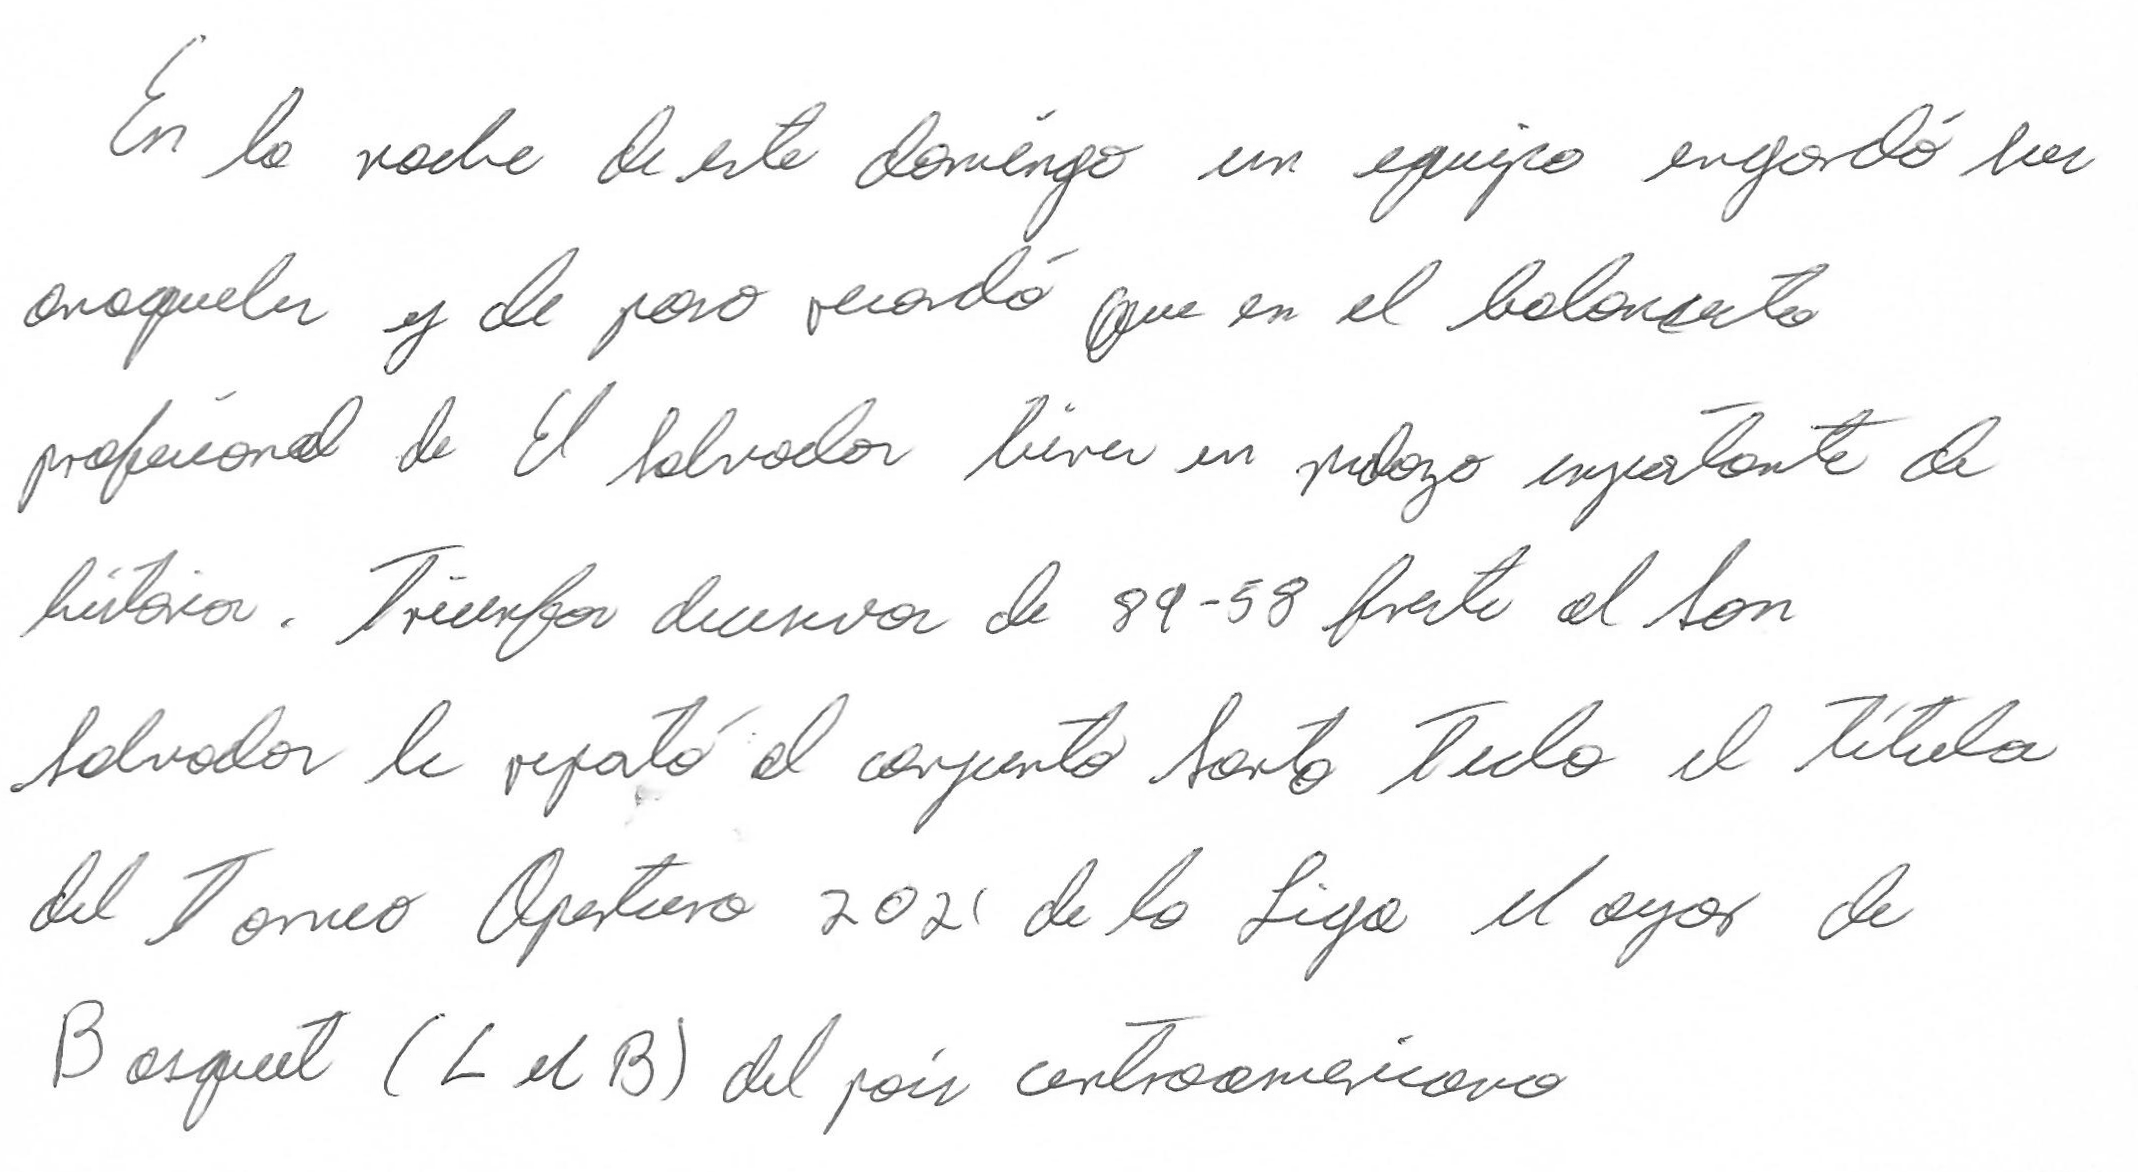 En la noche de este domingo un equipo engordó sus
anaqueles y de paso recordó que en el baloncesto
profesional de El Salvador tienen un pedazo importante de
historia. Triunfo decisivo de 89-58 frente al San
Salvador le reportó al conjunto Santa Tecla el título
del Torneo Apertura 2021 de la Liga Mayor de
Basquet (LMB) del país centroamericano